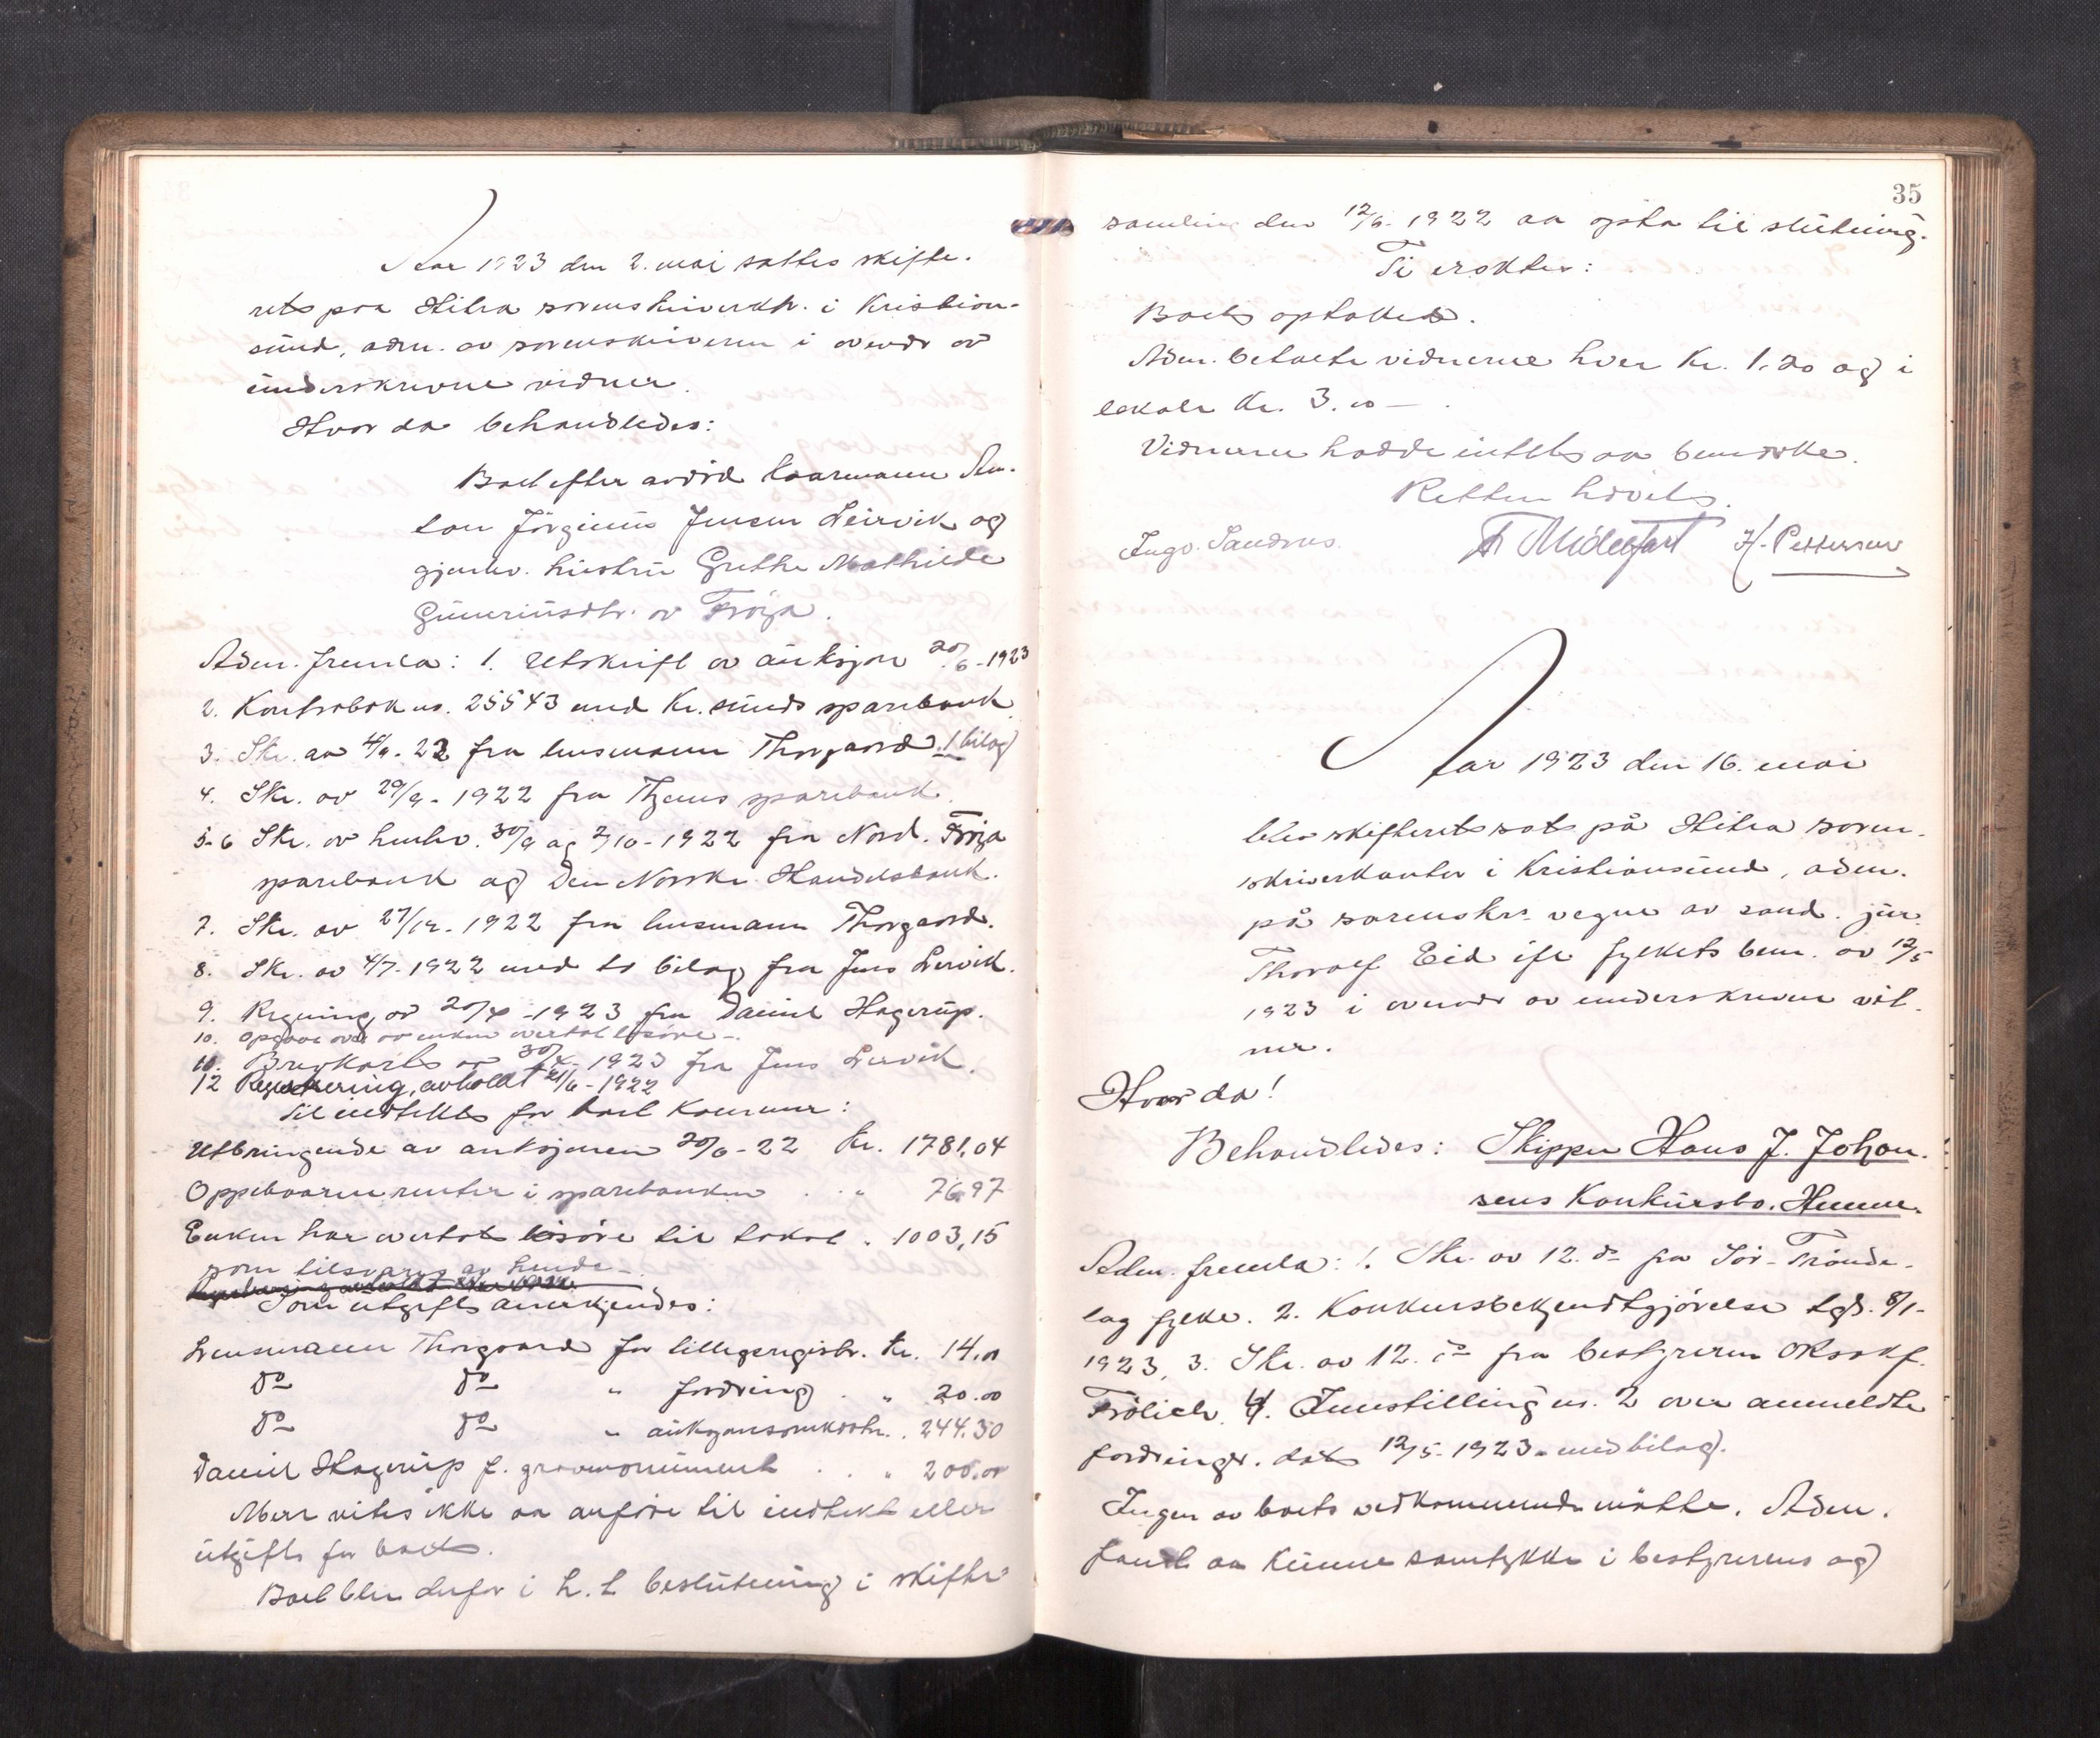 Aar 1923 den 2. mai sattes skifte-
ret paa Hitra sorenskriverktr. i Kristian-
sund, adm. av sorenskriveren i overvær av
underskrevne vidner.
Hvor da behandledes:
Boet efter avdød kaarmann An-
ton Jørginus Jensen Leirvik og
gjenlev. hustru Grethe Mathilde
Guneriusdtr. av Frøya.
Adm. fremla: 1. Utskrift av auksjon 20/6-1923
2. Kontrabok nr. 25543 med Kr.sunds sparebank
3. Skr. av 4/9-22 fra lensmann Thorgaard. 1 bilag
4. Skr. av 29/9-1922 fra sparebank
5-6 Skr. av henhv. 30/9 og 2/10-1922 fra Nord-Frøya
sparebank og Den Norske Handelsbank.
7. Skr. av 27/12-1922 fra lensmann Thorgaard.
8. Skr. av 4/7-1922 med to bilag fra Jens Lervik.
9. Regning av 20/4-1923 fra Daniel Hagerup.
10. Opgave over av enken overtat løsøre -.
11. Brevkort av 30/4-1923 fra Jens Lervik.
12 Registrering, avholdt 21/6-1922
Til indtekt for boet kommer:
Utbringende av auksjonen 20/6-22 Kr. 1781,04
Oppebaarne renter i sparebanken . . " 76.97
Enken har overtat løsøre til takst . 1003,15
som tilsvares av hende -
Som utgift anerkjendes:
Lensmann Thorgaard for tilleggsregistr. Kr. 14.00
do do " fordring . " 20.00
do do " auksjonsomkostn. . 244.30
Daniel Hagerup f. gravmonument . . " 200.00
Mere vites ikke aa anføre til indtekt eller
utgift for boet.
Boet blev derfor i h. t. beslutning i skifte-
35
samling den 12/6-1922 aa opta til slutning.
Ti ersktes:
Boet optokes.
Adm. betalte vidnerne hver Kr. 1.20 og i
lokale Kr. 3.00 -.
Vidnerne hadde intet aa bemerke.
Retten hævet.
Ingv. Sandnes. A Midelfart H. Pettersen
Aar 1923 den 16. mai
blev skifteret sat på Hitra soren-
skriverkontor i Kristiansund, adm.
på sorenskrs. vegne av cand. jur.
Thoralf Eid ifl. fylkets bem. av 12/5
1923 i overvær av underskrevne vit-
ner.
Hvor da!
Behandledes: Skipper Hans J. Johan-
sens Konkursbo. Hemne.
Adm. fremla: 1. Skr. av 12. ds. fra Sør-Trønde-
lag fylke. 2. Konkursbekjendtgjørelse tgl. 8/1-
1923, 3. Skr. av 12. ds. fra bestyreren O.R.sakf.
Frölich. 4. Innstilling nr. 2 over anmeldte
fordringer. dat. 12/5-1923 - med bilag.
Ingen av boets vedkommende møtte. Adm.
fandt aa kunne samtykke i bestyrerens og